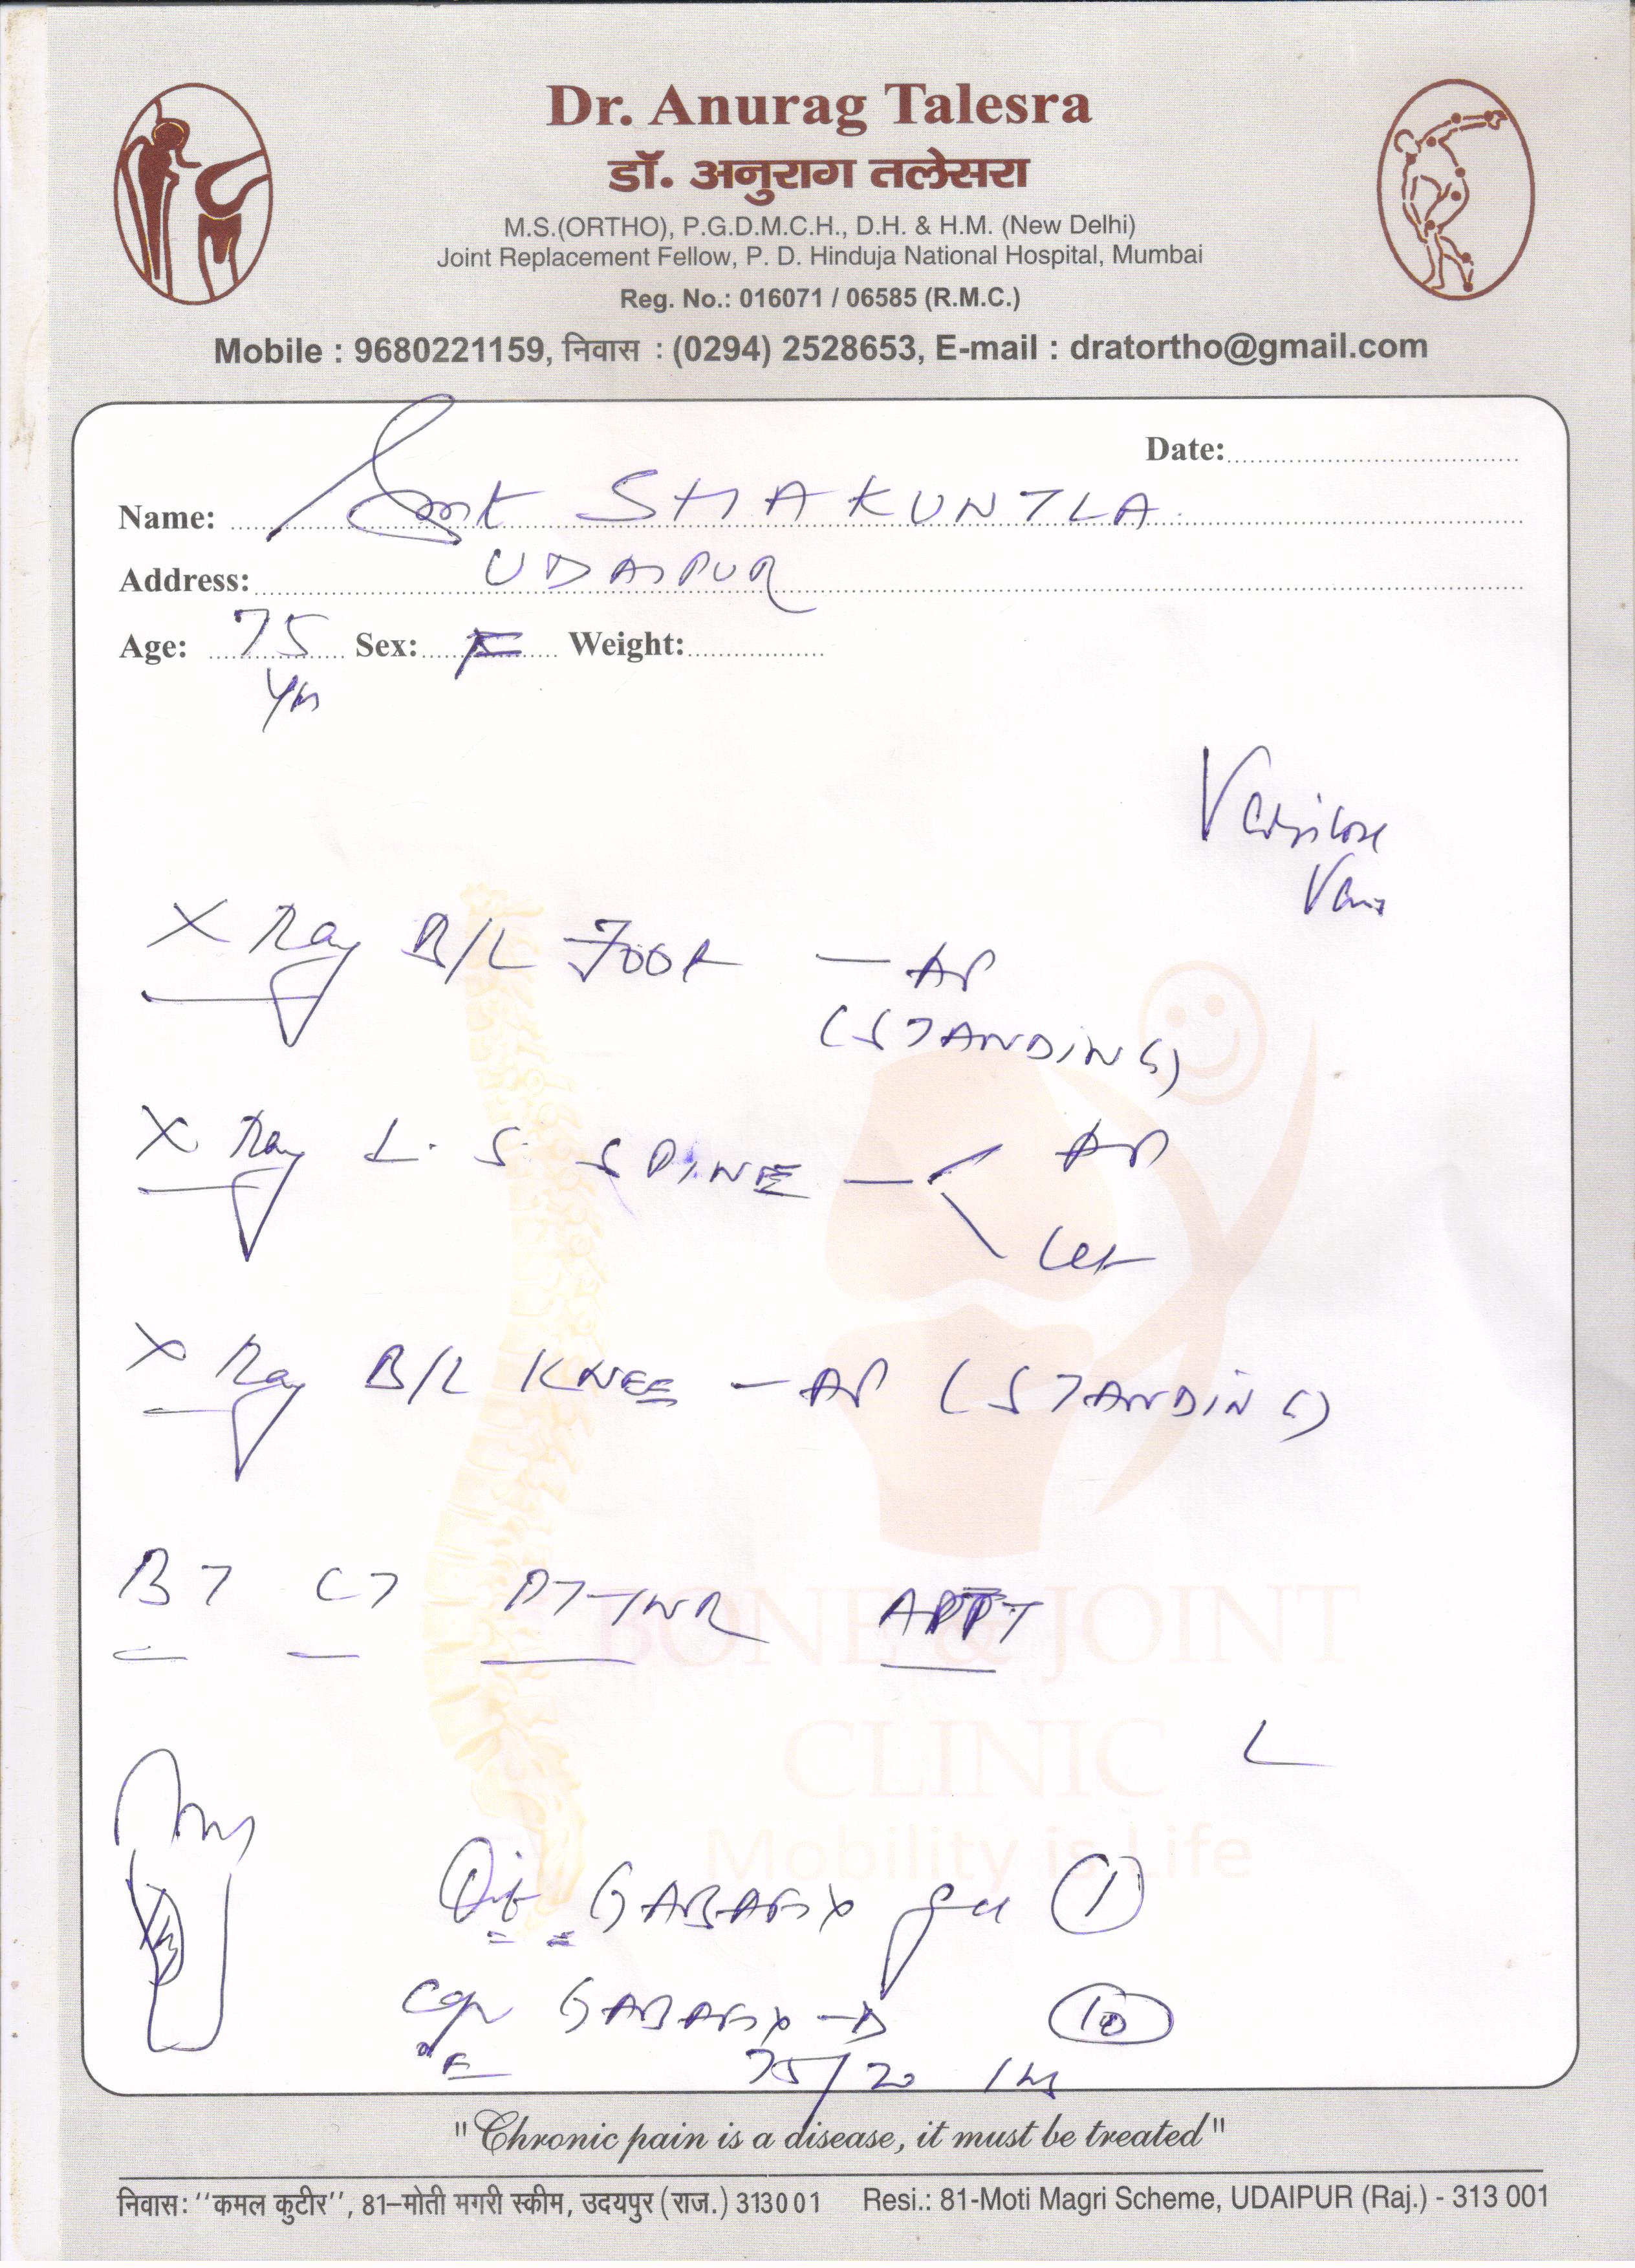 Dr. Anurag Talesra
डॉ. अनुराग तलेसरा
M.S.(ORTHO), P.G.D.M.C.H., D.H. & H.M. (New Delhi)
Joint Replacement Fellow, P. D. Hinduja National Hospital, Mumbai
Reg. No.: 016071 / 06585 (R.M.C.)
Mobile : 9680221159, निवास : (0294) 2528653, E-mail : dratortho@gmail.com
Date:
Name: Smt SHAKUNTLA
Address: UDAIPUR
Age: 75 Sex: F Weight:
Yrs
Varicose
Vein
X Ray B/L FOOT — AP
(STANDING)
X Ray L. S. SPINE — AP
Lat
X Ray B/L KNEE — AP (STANDING)
BT CT PT-INR APTT
BONE & JOINT
CLINIC
L
Mobility is Life
GABAFIX gel 1
Cap GABAFIX-D 10
75/20 1 hs
"Chronic pain is a disease, it must be treated"
निवास: ''कमल कुटीर'', 81–मोती मगरी स्कीम, उदयपुर (राज.) 313001 Resi.: 81-Moti Magri Scheme, UDAIPUR (Raj.) - 313 001